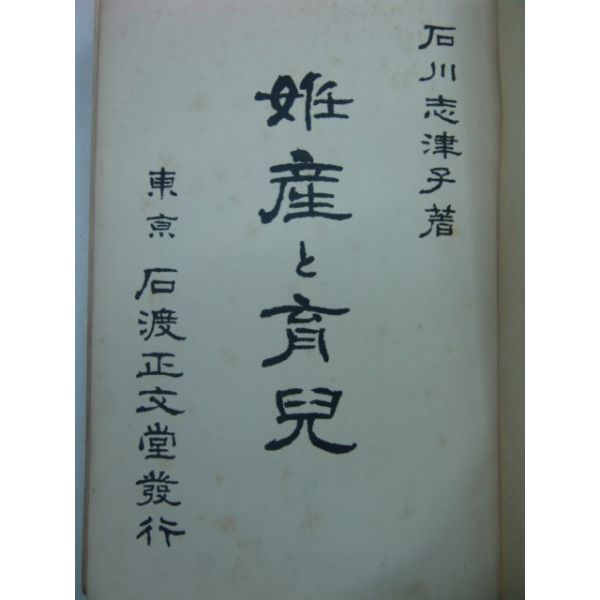 石川志津子著
姙産と育兒
東京 石渡正文堂發行